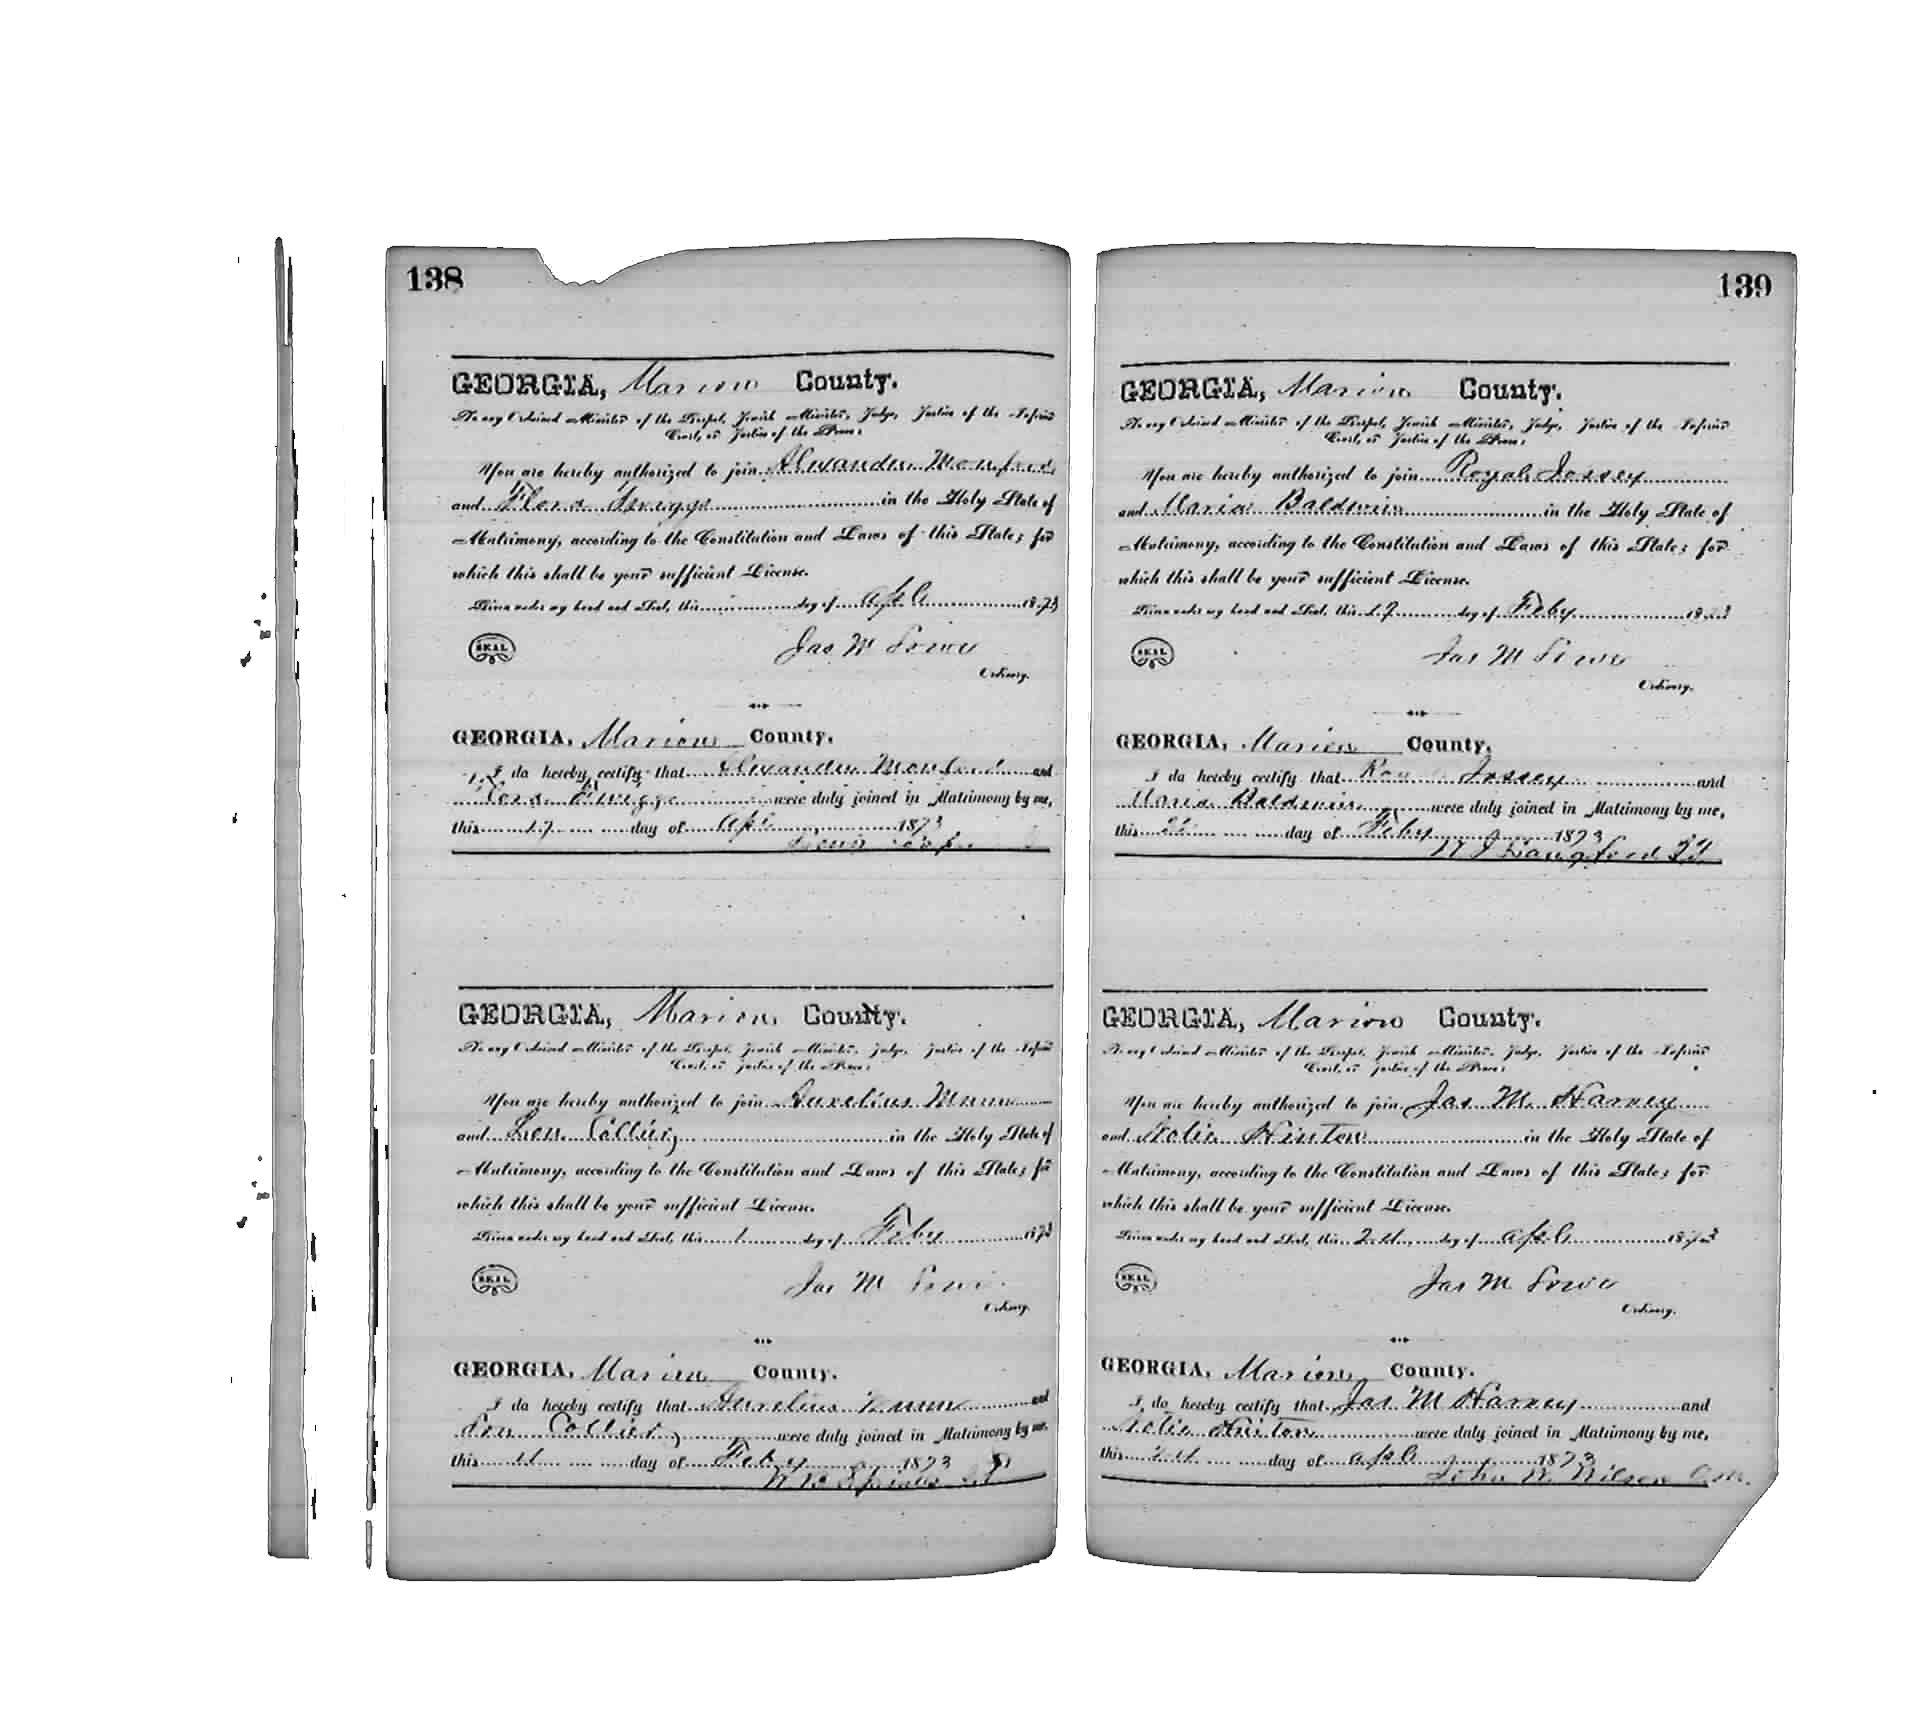 138
GEORGIA, Marion County.
To any Ordained Minister of the Gospel, Jewish Minister, Judge, Justice of the Inferior
Court, or Justice of the Peace:
You are hereby authorized to join Alexander
and Flora in the Holy State of
Matrimony, according to the Constitution and Laws of this State; for
which this shall be your sufficient License.
Given under my hand and Seal, this day of Apl 1873
SEAL
Jas M Lowe
Ordinary.
GEORGIA, Marion County.
I do hereby certify that Alexander and
Flora were duly joined in Matrimony by me,
this 17 day of Apl 1873
GEORGIA, Marion County.
To any Ordained Minister of the Gospel, Jewish Minister, Judge, Justice of the Inferior
Court, or Justice of the Peace:
You are hereby authorized to join Aurelius Munn
and Lou Collier in the Holy State of
Matrimony, according to the Constitution and Laws of this State; for
which this shall be your sufficient License.
Given under my hand and Seal, this 1 day of Feby 1873
SEAL
Jas M Lowe
Ordinary.
GEORGIA, Marion County.
I do hereby certify that Aurelius Munn and
Lou Collier were duly joined in Matrimony by me,
this day of Feby 1873
139
GEORGIA, Marion County.
To any Ordained Minister of the Gospel, Jewish Minister, Judge, Justice of the Inferior
Court, or Justice of the Peace:
You are hereby authorized to join Royal Jossey
and Maria Baldwin in the Holy State of
Matrimony, according to the Constitution and Laws of this State; for
which this shall be your sufficient License.
Given under my hand and Seal, this 17 day of Feby 1873
SEAL
Jas M Lowe
Ordinary.
GEORGIA, Marion County.
I do hereby certify that Jossey and
Maria Baldwin were duly joined in Matrimony by me,
this 22 day of Feby 1873
Langford
GEORGIA, Marion County.
To any Ordained Minister of the Gospel, Jewish Minister, Judge, Justice of the Inferior
Court, or Justice of the Peace:
You are hereby authorized to join Jas M. Harvey
and Hinton in the Holy State of
Matrimony, according to the Constitution and Laws of this State; for
which this shall be your sufficient License.
Given under my hand and Seal, this 24 day of Apl 1873
SEAL
Jas M Lowe
Ordinary.
GEORGIA, Marion County.
I do hereby certify that Jas M Harvey and
Hinton were duly joined in Matrimony by me,
this 24 day of Apl 1873
John W. Wilson